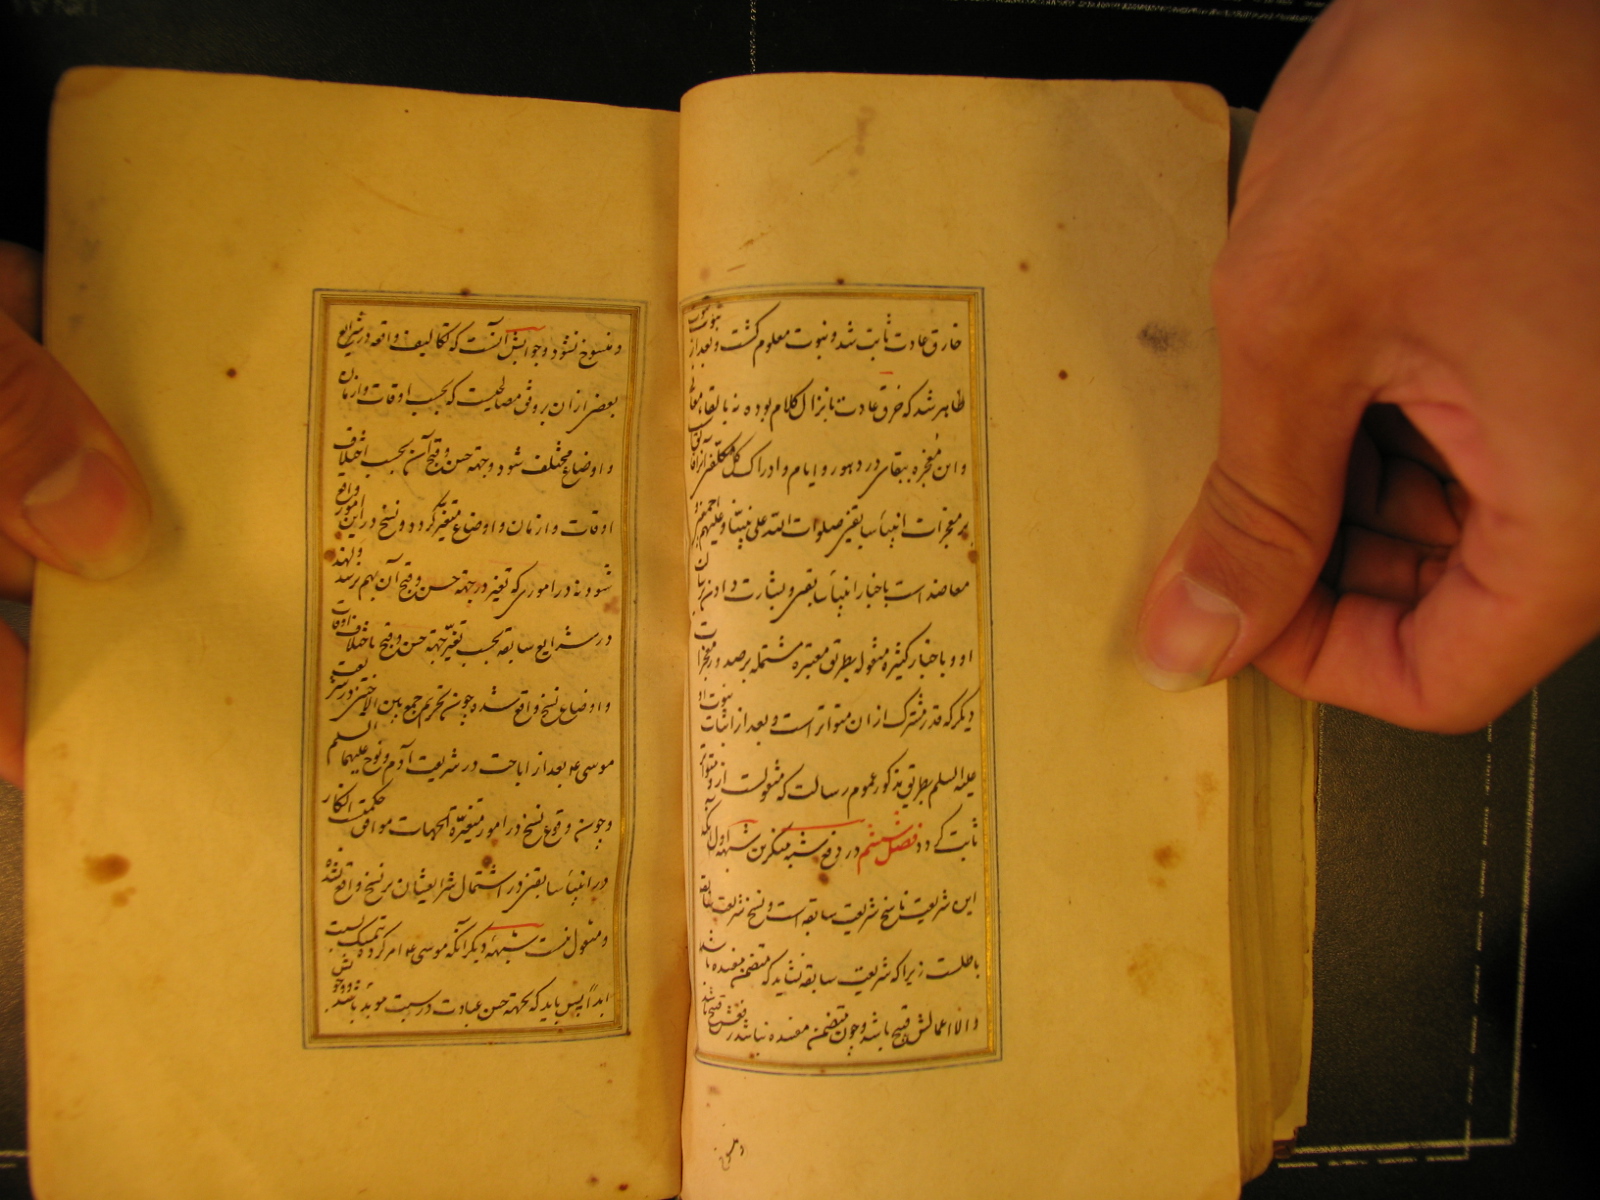 خارق عادت ثابت شد و نبوت معلوم گشت و بعد از ثبوت
ظاهر شد که خرق عادت بانزال کلام بوده نه بالقاء معانی
و این معجزه ببقای در دهور و ایام و ادراک کل مکلفین
بر معجزات انبیاء سابقین صلوات الله علی نبینا و علیهم اجمعین و
معاضد است باخبار انبیاء سابقین و بشارت دادن
او و باخبار کثیره منقوله بطریق معتبره مشتمله بر صدور معجزات
دیگر که قدر مشترک از ان متواتر است و بعد از اثبات نبوت او
علیه السلم بطریق مذکور عموم رسالت که منقولست از و متواتر
ثابت گردد فصل ششم در دفع شبه منکرین شبهه اول آنکه
این شریعت ناسخ شریعت سابقه است و نسخ شریعت سابقه
باطلست زیرا که شریعت سابقه نشاید که متضمن مفسده باشد
و الا اعمالش قبیح باشد و چون متضمن مفسده نباشد رفعش قبیح باشد
و منسوخ نشود و جوابش آنست که تکالیف واقعه در شرایع
بعضی از ان بر وفق مصالحیست که بحسب اوقات و ازمان
و اوضاع مختلف شود و جهة حسن و قبح آن بحسب اختلاف
اوقات و ازمان و اوضاع متغیر گردد و نسخ در این امور واقع
شود نه در اموری که تغیر در جهة حسن و قبح آن بهم نرسد و لهذا
در شرایع سابقه بحسب تغیر جهة حسن و قبح باختلاف اوقات
و اوضاع نسخ واقع شده چون تحریم جمع بین الاختین در شریعت
موسی ع بعد از اباحت در شریعت آدم و نوح علیهما السلم
و چون وقوع نسخ در امور متغیرة الجهات موافق حکمتست انکار
در انبیاء سابقین در اشتمال شرایعشان بر نسخ واقع نشده
و منقول نیست شبههٔ دیگر آنکه موسی ع امر کرده بتمسک سبت
ابدًا پس باید که بجهة حسن عبادت در سبت موبد باشد و جوابش